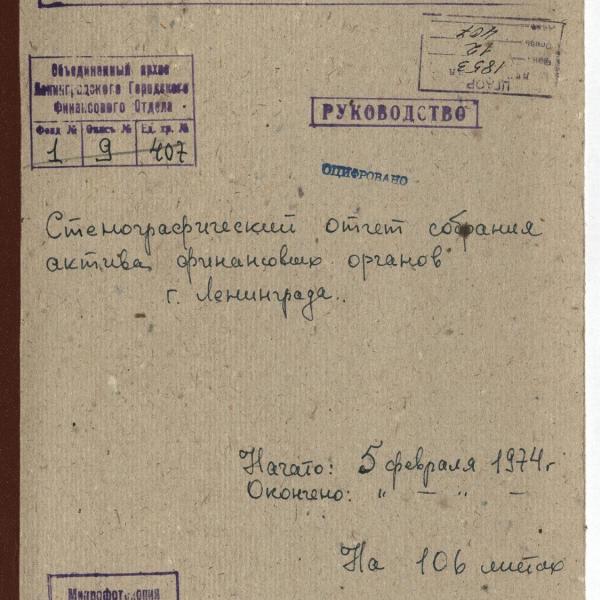 Объединенный архив
Ленинградского Городского
Финансового Отдела
Фонд № Опись № Ед. хр. №
1 9 407
ЦГАОР
1853
Опись 12
407
РУКОВОДСТВО
ОЦИФРОВАНО
Стенографический отчет собрания
актива финансовых органов
г. Ленинграда..
Начато: 5 февраля 1974г
Окончено: " — " —
На 106 листах
Микрофотокопия